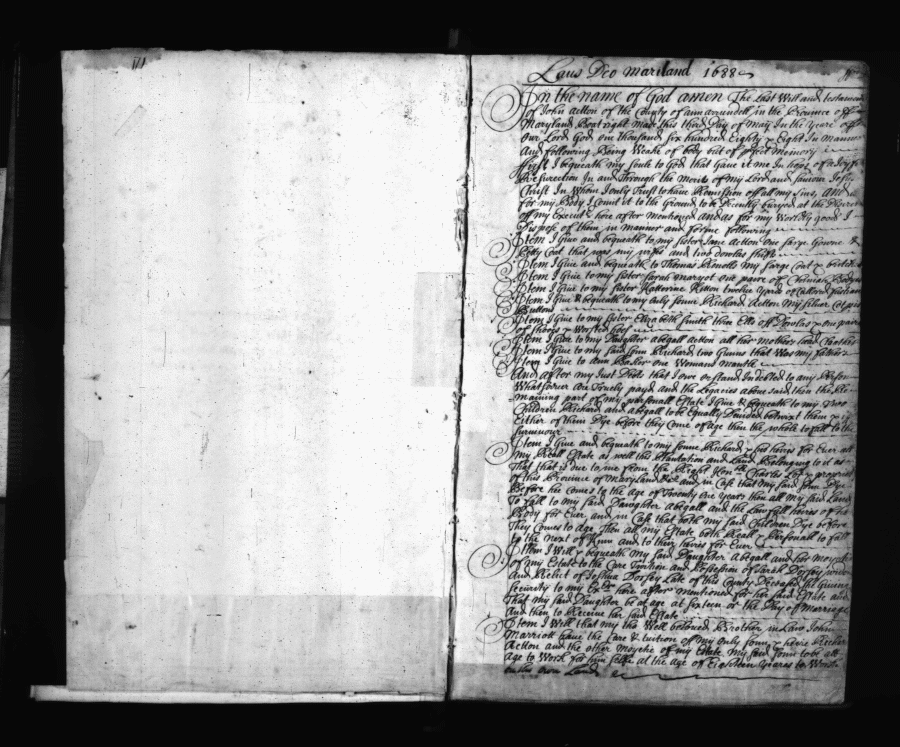 Laus Deo Mariland 1688
In the name of God amen The Last Will and testament
of John Acton of the County of annarrundell in the Province off
Maryland Boatright made this third Day of May In the Yeare off
Our Lord God on thousand six hundred Eighty & Eight In Manner
And following Being Weake of body but of perfect Memory
first I bequeath my soule to God that Gave it me In hops of a Joyfull
Resurection In and through the Merits of my Lord and saviour Jesus
Christ In Whom I only Trust to have Remission off all my sins, And
for my Body I Comit it to the Ground to be Decently buryed at the Discret
off my Execut here after Mentioned and as for my Worldly good I
Dispose of them in Manner and forme following
Item I Give and bequeath to my sister Jane Acton One sarge Gowne &
Petty Coat that was my wifes and two Dowlas shifts
Item I Give and bequeath to Thomas my sarge Coat &
Item I Give to my sister Sarah one paire of Bodyes
Item I Give to my sister Katterine twelve Yards of
Item I Give & bequeath to my Only sonne Richard Acton My silver
Buttons
Item I Give to my sister Elizabeth smith three Ells off Dowlas & one paire
of shooes & Worsted hose
Item I Give to my Daughter abigall acton all her mothers
Item I Give to my said sonn Richard two Gunns that Was my fathers
Item I Give to ann one Womans Mantle
And after my Just Debts that I owe or stand Indebted to any Person
Whatsoever are Truely payd and the Legacies above said then the Re
maining part of my personall Estate I Give & bequeath to my Two
Children Richard and abigall to be Equally Devided betwixt them & if
Either of them Dye before they Come of age then the whole to fall to the
survivour
Item I Give and bequeath to my sonne Richard & his heires for Ever all
my Reall Estate as well the Plantation and Land Belonging to it as
That that is due to me from the Right Charles
of this Province of Maryland and in Case that my said sonn Dye
Before hee Comes to the age of Twenty One Years then all my said Land
To fall to my said Daughter abigall and the Lawfull heires of her
Body for Ever and in Case that both my said Children Dye before
They Comes to age Then all my Estate both Reall & Personall to fall
to the Next of Kinn and to their heires for Ever
Item I Will & bequeath my said Daughter Abigall and her
of my Estate to the Care Tuition and Possession of Sarah Dorsey widow
And Relict of Joshua Dorsey Late of this County Deceased she Giving
security to my here after mentioned for her said Estate and
That my said Daughter be of age at sixteen or the Day off Marriage
And then to Receive her said Estate
Item I Will that my Well beloved Brother in Law John
Marriott have the Care & tuition off my Only sonn & heire Richard
Acton and the other of my Estate My said sonn to be att
age to Work for him selfe at the age of Eighteen Yeares to Work
his own Land